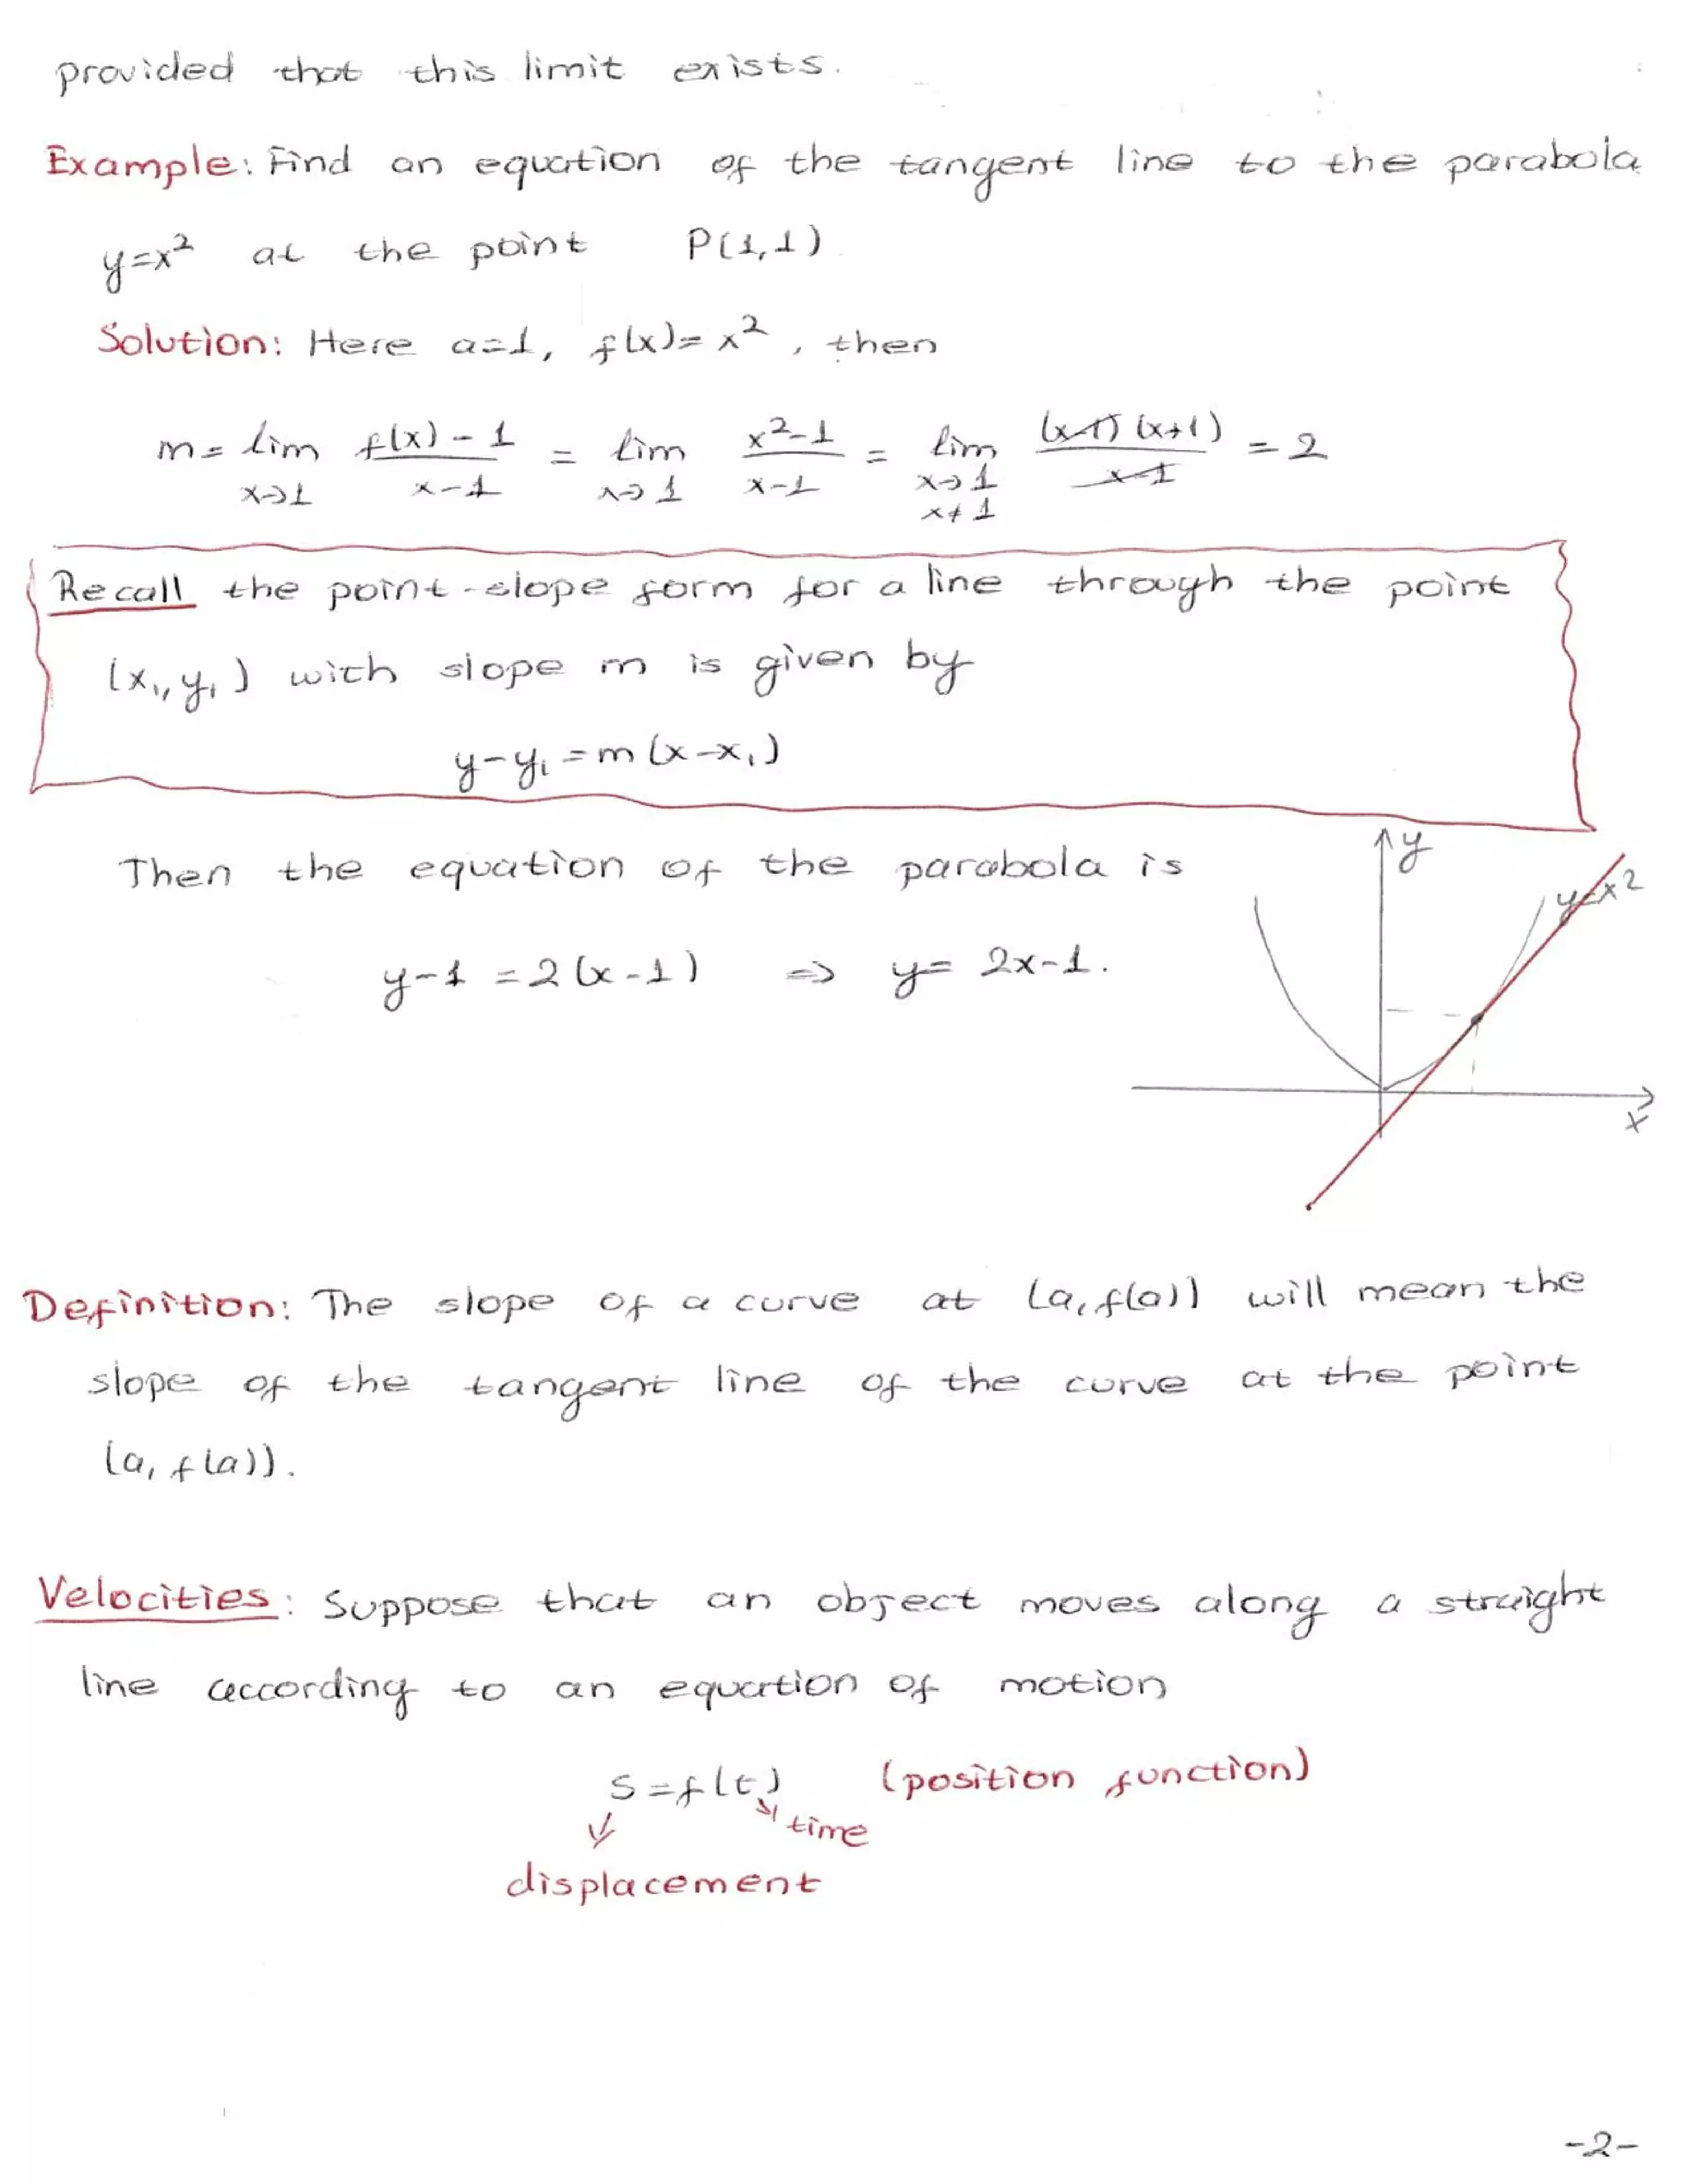 provided that this limit exists.
Example: Find an equation of the tangent line to the parabola
y=x² at the point P(1,1)
Solution: Here a=1, f(x)=x², then
m = lim x→1 (f(x)-1)/(x-1) = lim x→1 (x²-1)/(x-1) = lim x→1 x≠1 (x-1)(x+1)/(x-1) = 2
Recall the point-slope form for a line through the point
(x₁,y₁) with slope m is given by
y-y₁=m(x-x₁)
Then the equation of the parabola is
y-1=2(x-1) ⇒ y=2x-1.
y
y=x²
x
Definition: The slope of a curve at (a,f(a)) will mean the
slope of the tangent line of the curve at the point
(a,f(a)).
Velocities: Suppose that an object moves along a straight
line according to an equation of motion
S=f(t) (position function)
time
displacement
-2-